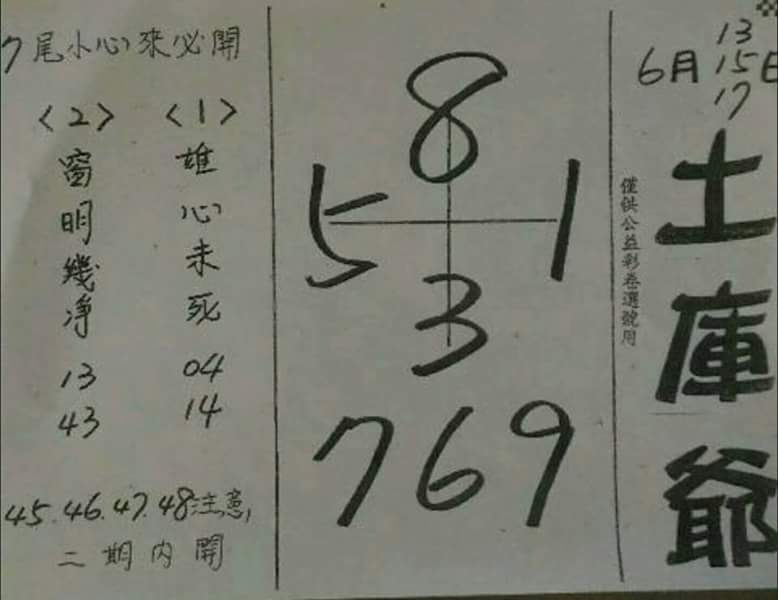 6月 13 15 17 日
土庫爺
僅供公益彩卷選號用
8
5 1
3
769
7尾小心來必開
<1>
雄心未死
04
14
<2>
窗明幾净
13
43
45.46.47.48注意,
二期内開